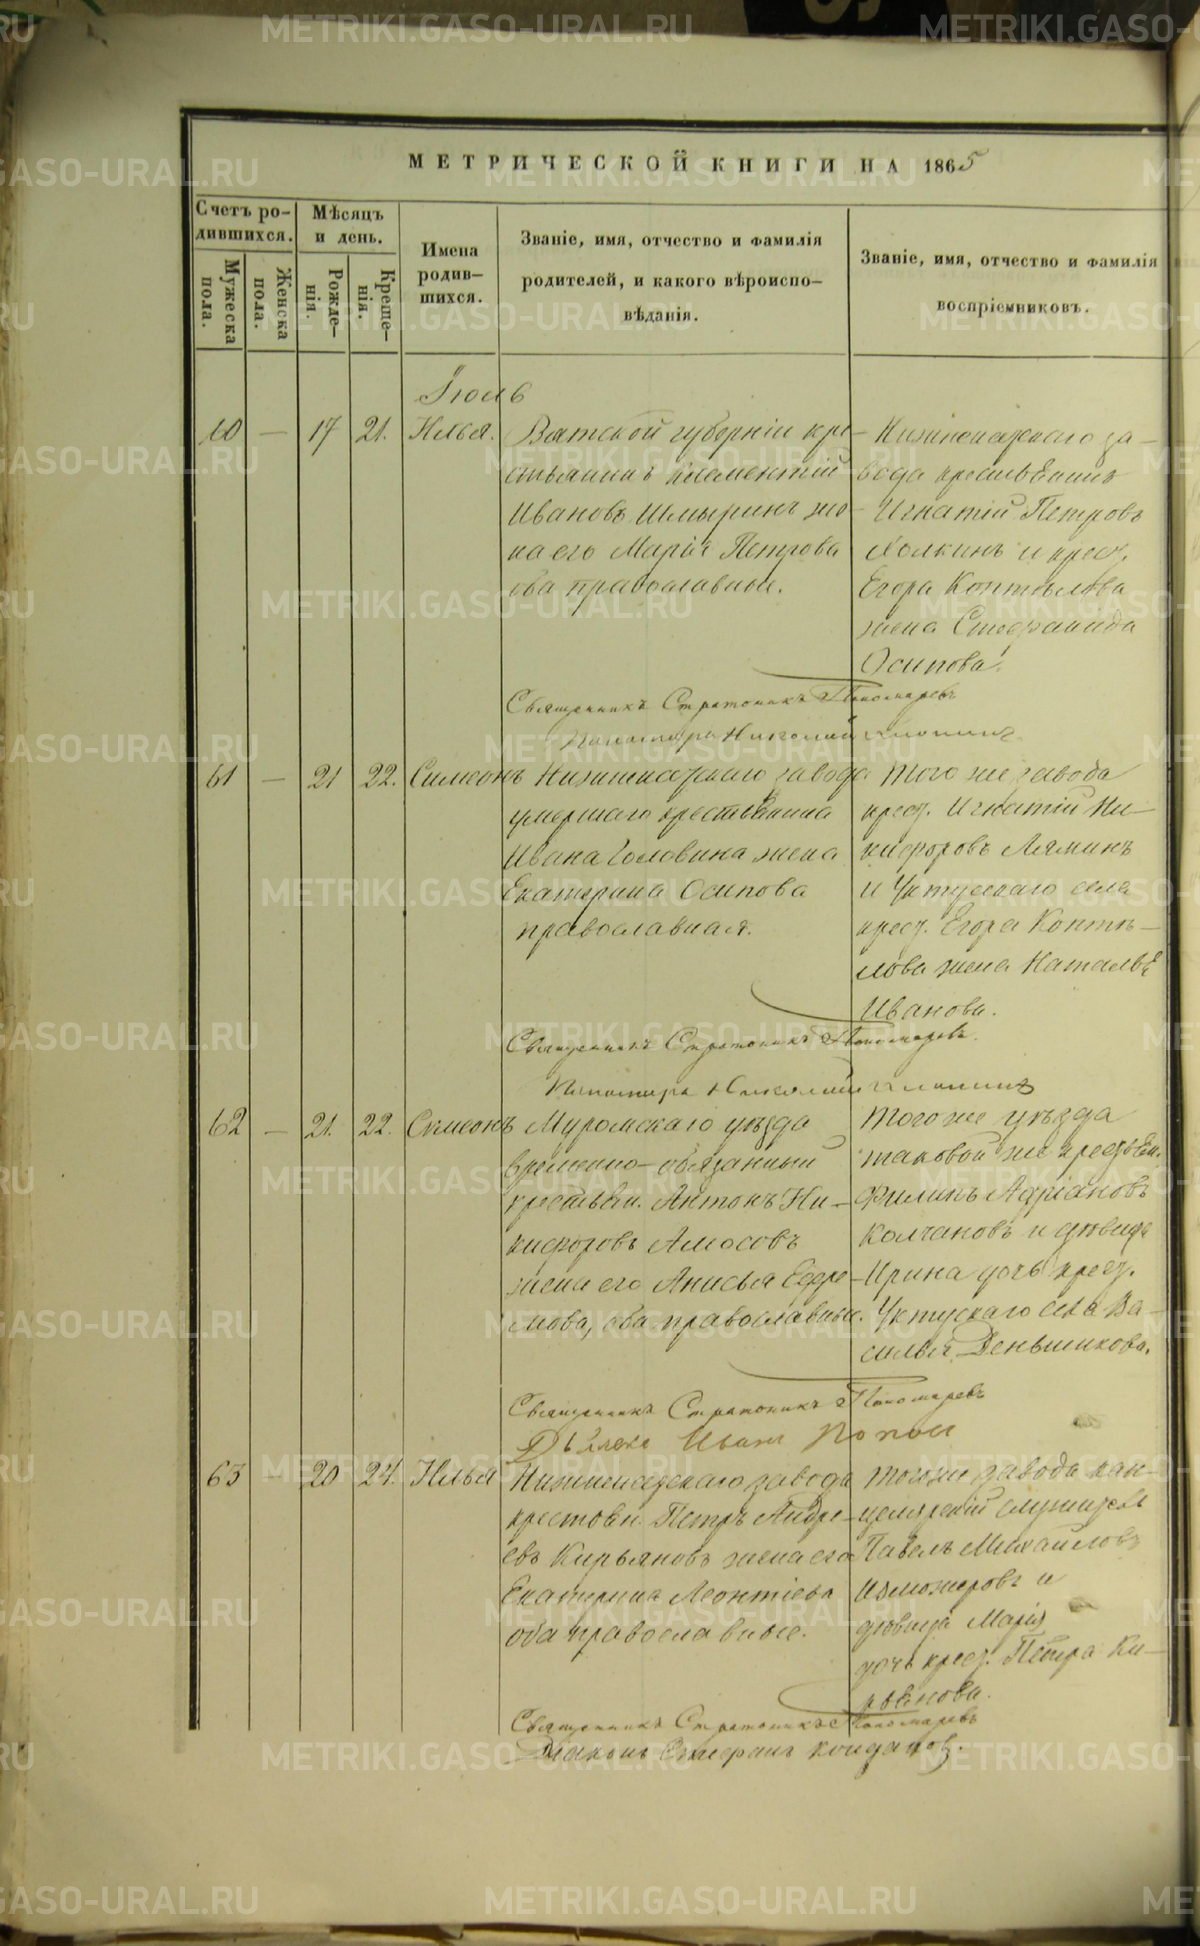 МЕТРИЧЕСКОЙ КНИГИ НА 1865
Счетъ ро-
дившихся.
Мужеска
пола.
Женска
пола.
Мѣсяцъ
и день.
Рожде-
нія.
Креще-
нія.
Имена
родив-
шихся.
Званіе, имя, отчество и фамилія
родителей, и какого вѣроиспо-
вѣданія.
Званіе, имя, отчество и фамилія
воспріемниковъ.
Іюль
60 — 17 21. Илья.
Вятской губерніи кре-
стьянинъ Климентій
Ивановъ Шмыринъ же-
на его Марія Петрова
оба православные.
Нижнеисетскаго за-
вода крестьянинъ
Игнатій Петровъ
Холкинъ и крест.
Егора Коптѣлова
жена Стефанида
Осипова.
Священникъ Стратоникъ Пономаревъ
Пономарь Николай
61 — 21 22. Симеонъ
Нижнеисетскаго завода
умершаго крестьянина
Ивана Головина жена
Екатерина Осипова
православная.
Того же завода
крест. Игнатій Ни-
кифоровъ Ляминъ
и Уктусскаго села
крест. Егора Коптѣ-
лова жена Наталья
Иванова.
Священникъ Стратоникъ Пономаревъ.
Пономарь Николай
62 — 21. 22. Симеонъ
Муромскаго уѣзда
временно-обязанный
крестьян. Антонъ Ни-
кифоровъ Амосовъ
жена его Анисья Ефре-
мова, оба православные.
Того же уѣзда
таковой же крестьян.
Филипъ Адріановъ
Колчановъ и дѣвица
Ирина дочь крест.
Уктускаго села Ва-
силья Деньшикова.
Священникъ Стратоникъ Пономаревъ
Дьячекъ Иванъ Поповъ
63 — 20 24. Илья
Нижнеисетскаго завода
крестьян. Петръ Андре-
евъ Кирьяновъ жена его
Екатерина Леонтіева
оба православные.
Того же завода кан-
целярскій служитель
Павелъ Михайловъ
Изможеровъ и
дѣвица Марія
дочь крест. Петра Ки-
рьянова.
Священникъ Стратоникъ Пономаревъ
Діаконъ Стефанъ Кондаковъ.